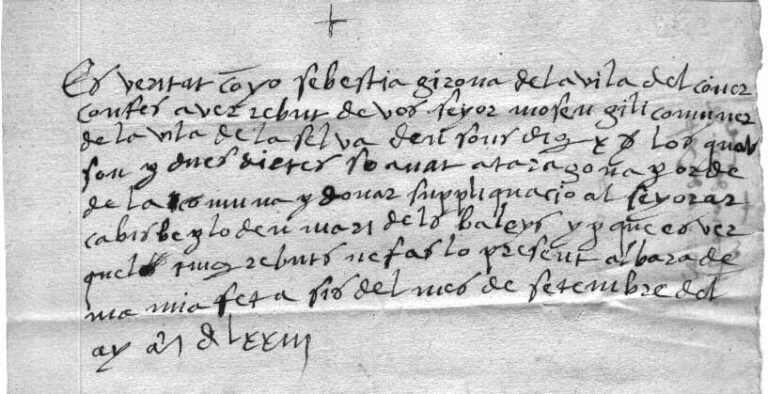 Es veritat com yo sebestia girona de la vila del coner
confes aver rebut de vos seyor mosen gili comuner
de la vila de la selva deu sous dig x ß los quals
son p dues dietes so anat a taragona p orde
de la comuna p donar suppliquacio al seyor ar
cabisbe p lo den mari dels baleys y p que es ver
quels ting rebuts ne fas lo present albara de
ma mia fet a sis del mes de setembre del
ay lxxiii